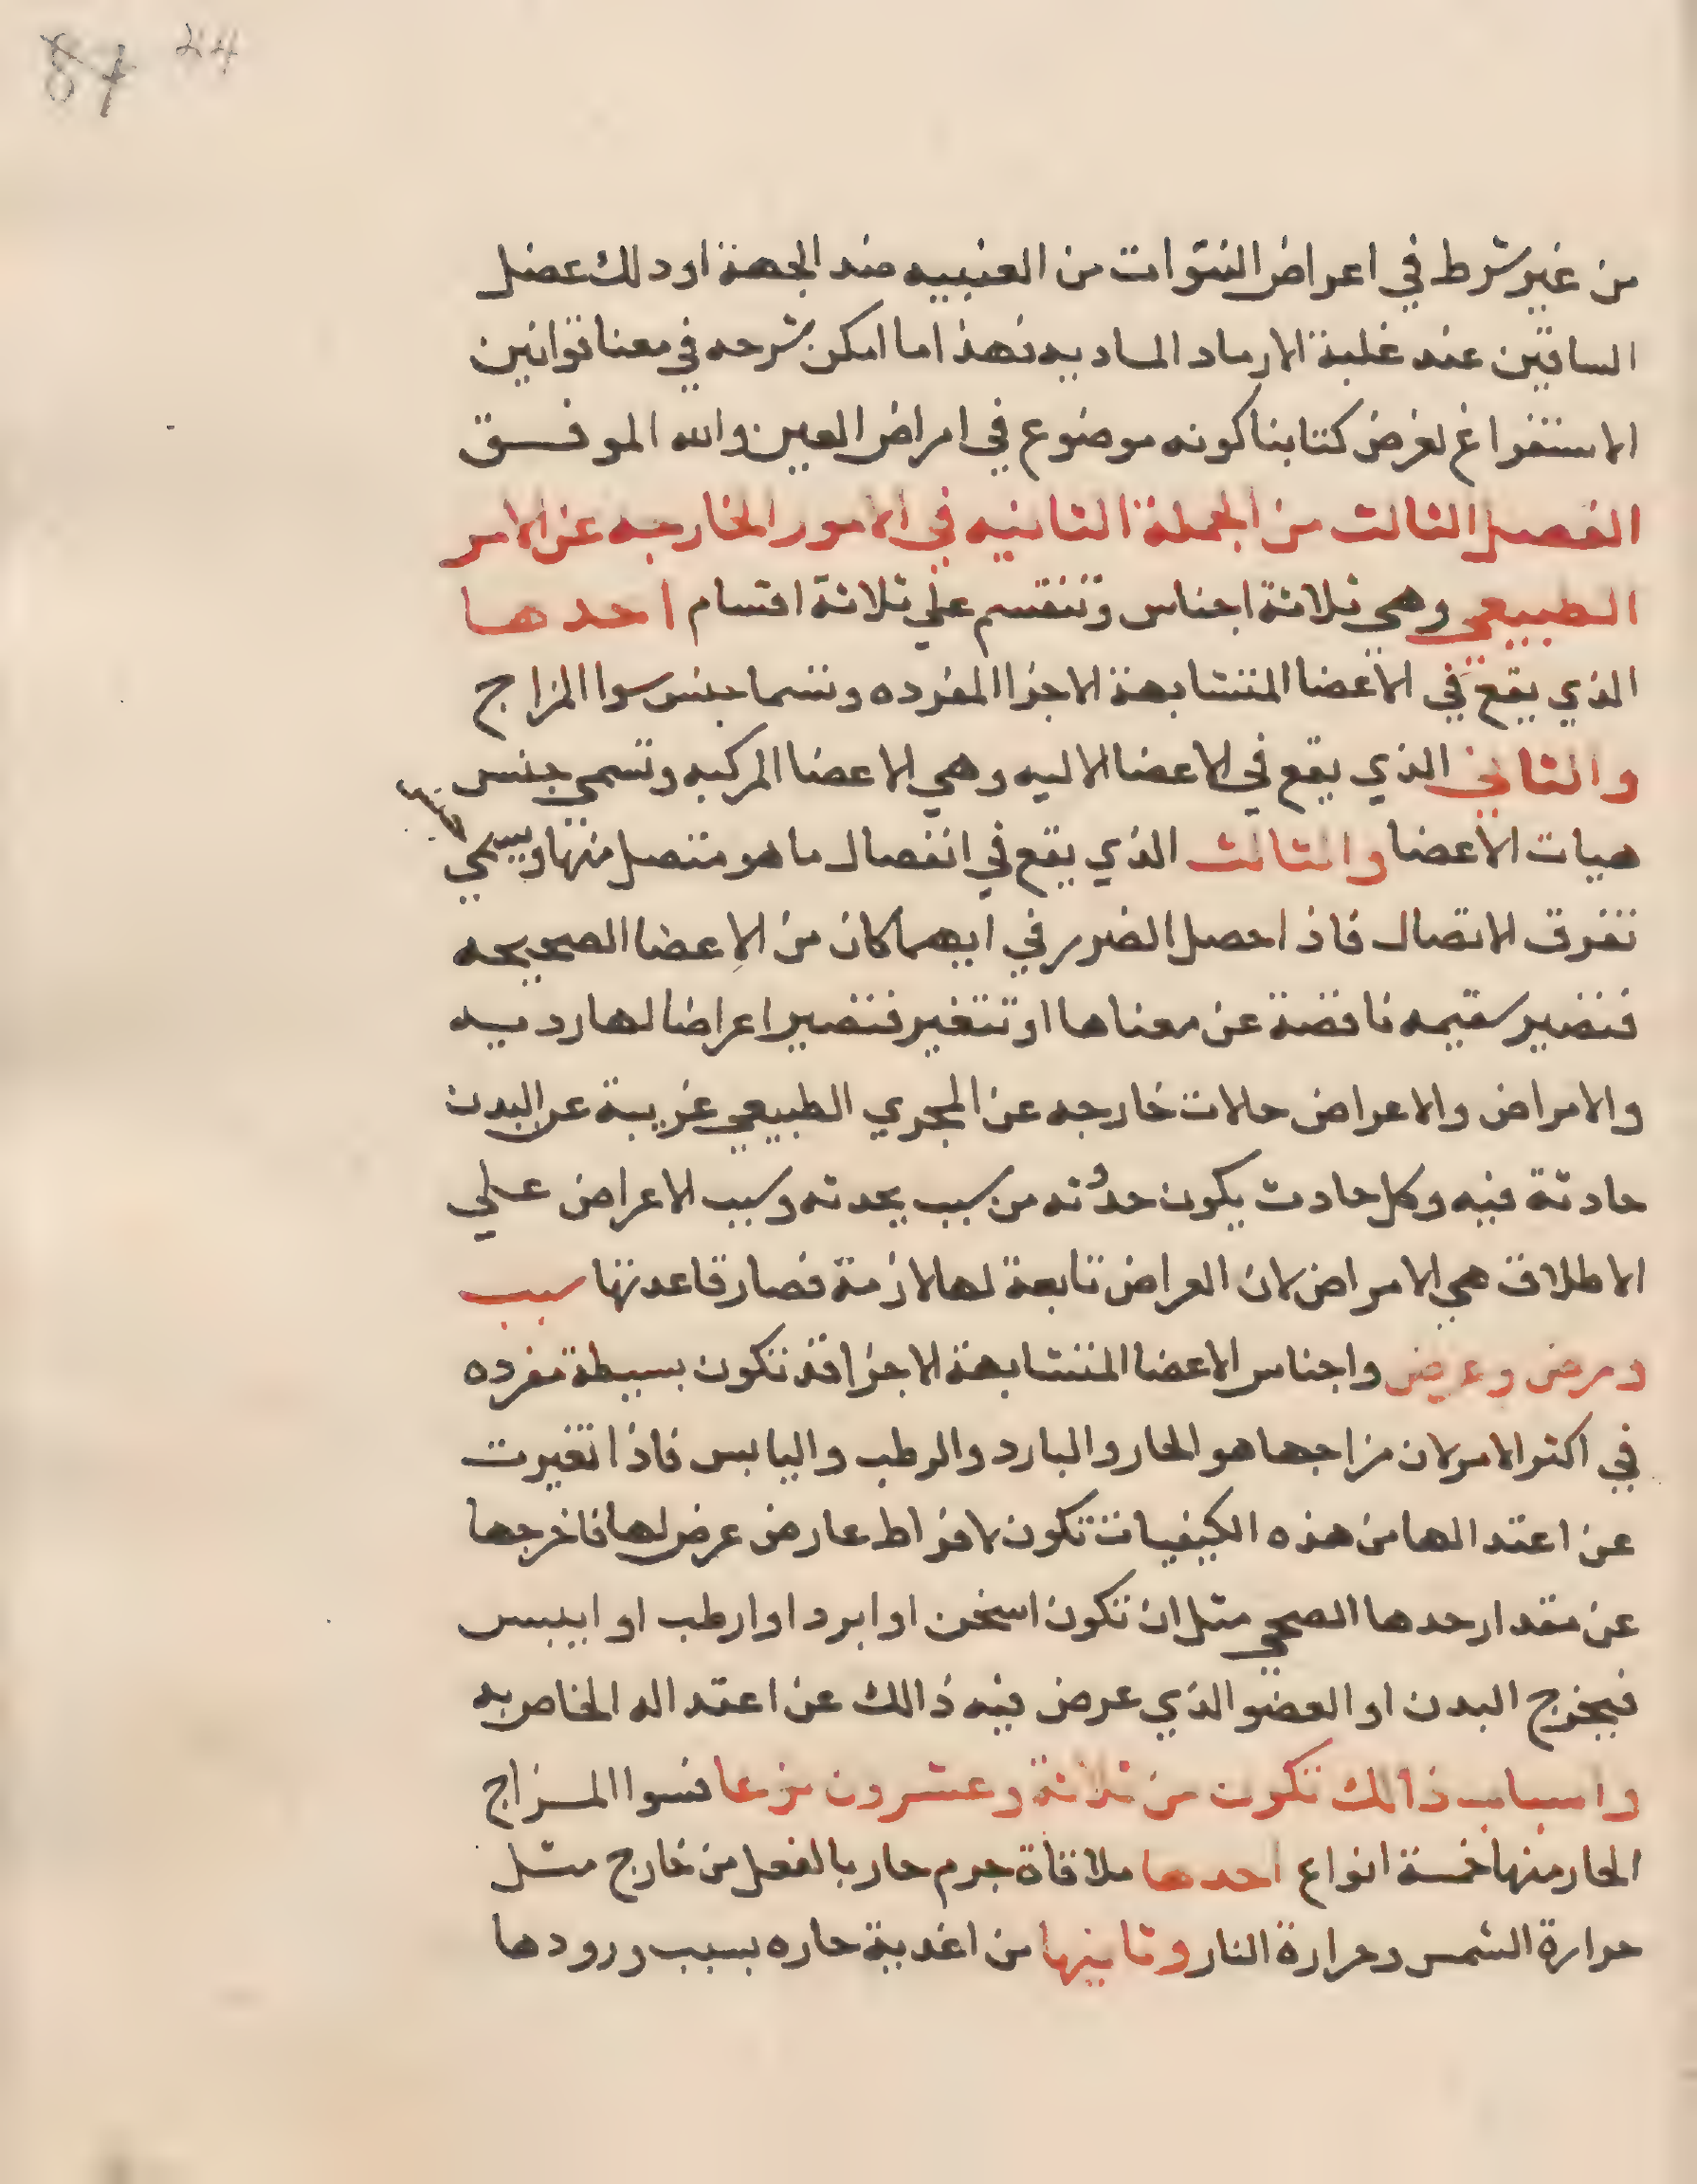 84 24
من غير شرط في اعراض النتوات من العنبيه ضد الجهة او دلك عضل
الساقين عند غلبة الارماد الماديه فهذا ما امكن شرحه في معنا قوانين
الاستفراغ لغرض كتابنا كونه موضوع في امراض العين والله الموفــق
الفصل الثالث من الجملة الثانيه في الامور الخارجه عن الامر
الطبيعي وهي ثلاثة اجناس وتنقسم علي ثلاثة اقسام احدها
الذي يقع في الاعضا المتشابهة الاجزا المفرده وتسما جنس سوا المزاج
والثاني الذي يقع في الاعضا الاليه وهي الاعضا المركبه وتسمي جنس
هيات الاعضا والثالث الذي يقع في انفصال ما هو متصل منها ويسمي جنس
تفرق الاتصال فاذا حصل الضرر في ايهما كان من الاعضا الصحيحه
فتصير سقيمه ناقصة عن معناها او تتغير فتصير اعراضا لها رديه
والامراض والاعراض حالات خارجه عن المجري الطبيعي غريبة عن البدن
حادثة فيه وكل حادث يكون حدوثه من سبب يحدثه وسبب الاعراض علي
الاطلاق هي الامراض لان العراض تابعة لها لازمة فصار قاعدتها سبب
ومرض وعرض واجناس الاعضا المتشابهة الاجزا قد تكون بسيطة مفرده
في اكثر الامر لان مزاجها هو الحار والبارد والرطب واليابس فاذا تغيرت
عن اعتدالها من هذه الكيفيات تكون لافراط عارض عرض لها فاخرجها
عن مقدار حدها الصحي مثل ان تكون اسخن او ابرد او ارطب او ايبس
فيخرج البدن او العضو الذي عرض فيه ذالك عن اعتداله الخاص به
واسباب ذالك تكون من ثلاثة وعشرون نوعا فسوا المزاج
الحار منها خمسة انواع احدها ملاقاة جرم حار بالفعل من خارج مثل
حرارة الشمس وحرارة النار وثانيها من اغدية حاره بسبب ورودها